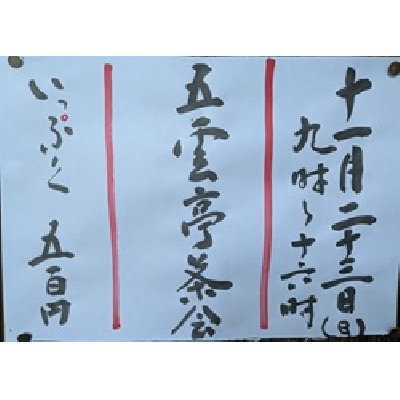 十一月二十三日(日)
九時〜十六時
五雲亭茶会
いっぷく 五百円